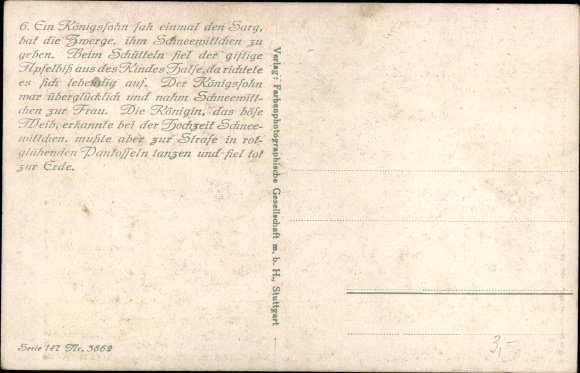 6. Ein Königssohn sah einmal den Sarg,
bat die Zwerge, ihm Schneewittchen zu
geben. Beim Schütteln fiel der giftige
Apfelbiß aus des Kindes Halse, da richtete
es sich lebendig auf. Der Königssohn
war überglücklich und nahm Schneewitt-
chen zur Frau. Die Königin, das böse
Weib, erkannte bei der Hochzeit Schnee-
wittchen, mußte aber zur Strafe in rot-
glühenden Pantoffeln tanzen und fiel tot
zur Erde.
Serie 147 Nr. 3869
Verlag: Farbenphotographische Gesellschaft m. b. H., Stuttgart
3,-